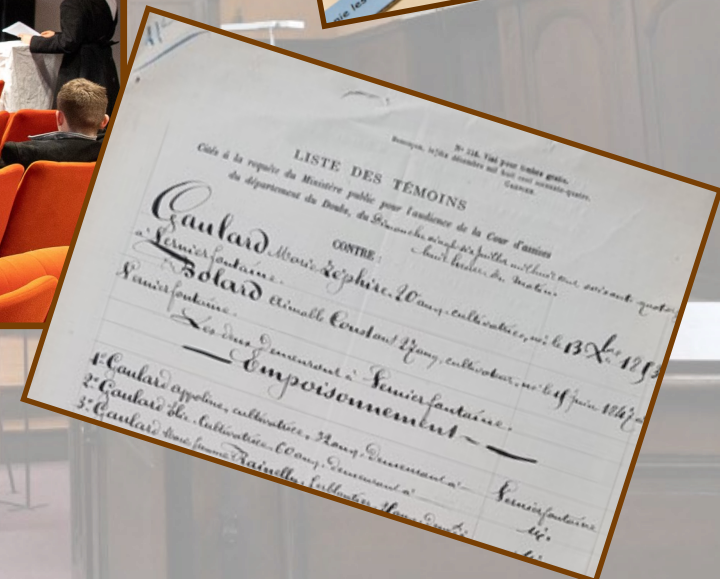 nie les
N° 116. Visé pour timbre gratis.
Besançon, le dix décembre mil huit cent soixante-quatorze.
LISTE DES TÉMOINS
Cités à la requête du Ministère public pour l'audience de la Cour d'assises
du département du Doubs, du Dimanche vingt six juillet mil huit cent soixante quator
huit heures du matin.
CONTRE :
Gaulard Marie Zéphire, 20 ans, cultivatrice, née le 13 Xbre 1853
à Vernierfontaine.
Bolard Aimable Constant 27 ans, cultivateur, né le 15 juin 1847 à
Vernierfontaine.
Les deux demeurant à Vernierfontaine.
Empoisonnement
1° Gaulard appoline, cultivatrice, 32 ans, demeurant à Vernierfontaine
2° Gaulard Cultivatrice, 60 ans, demeurant à id.
3° Gaulard femme Rainelly, ferblantier